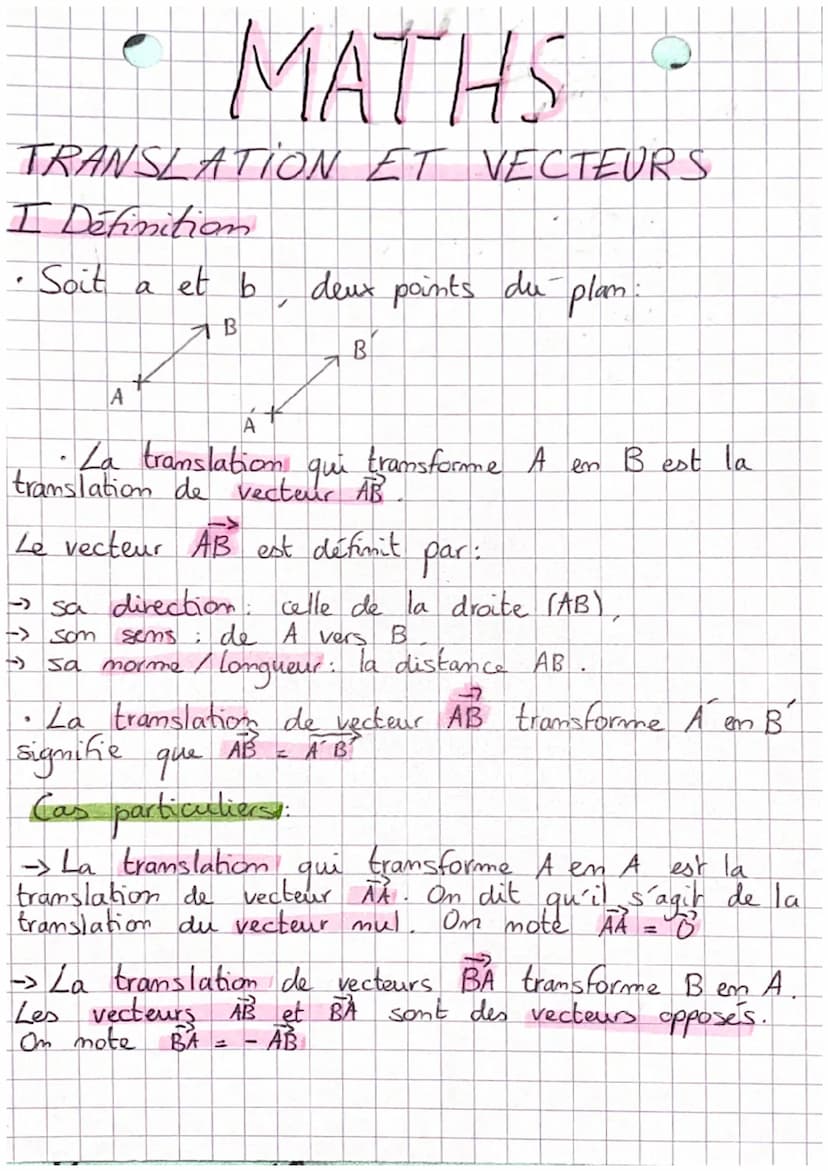 MATHS
TRANSLATION ET VECTEURS
I Définition
· Soit a et b, deux points du plan :
B
B'
A
A'
· La translation qui transforme A en B est la
translation de vecteur \overrightarrow{AB}.
Le vecteur \overrightarrow{AB} est définit par :
→ sa direction : celle de la droite (AB),
→ son sens : de A vers B.
→ sa norme / longueur : la distance AB.
· La translation de vecteur \overrightarrow{AB} transforme A' en B'
signifie que \overrightarrow{AB} = \overrightarrow{A'B'}
Cas particuliers :
→ La translation qui transforme A en A est la
translation de vecteur \overrightarrow{AA}. On dit qu'il s'agit de la
translation du vecteur nul. On note \overrightarrow{AA} = \overrightarrow{0}
→ La translation de vecteurs \overrightarrow{BA} transforme B en A.
Les vecteurs \overrightarrow{AB} et \overrightarrow{BA} sont des vecteurs opposés.
On note \overrightarrow{BA} = - \overrightarrow{AB}